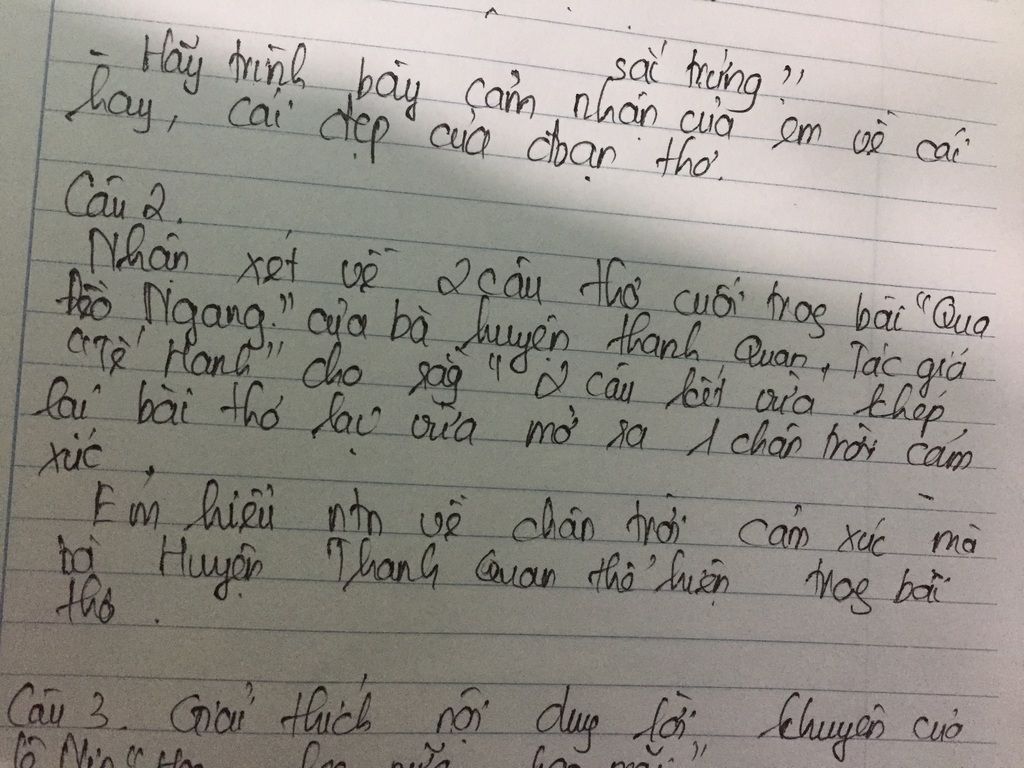 sắc trứng"
- Hãy trình bày cảm nhận của em về cái
hay, cái đẹp của đoạn thơ.
Câu 2.
Nhân xét về 2 câu thơ cuối trog bài "Qua
đèo Ngang." của bà huyện thanh Quan, Tác giả
"Tế Hanh" cho rằg "2 câu kết vừa khép
lại bài thơ lại vừa mở ra 1 chân trời cảm
xúc.
Em hiểu ntn về chân trời cảm xúc mà
bà Huyện Thanh Quan thể hiện trog bài
thơ.
Câu 3. Giải thích nội dug lời khuyên của
lê Nin "Học học nữa học mãi"